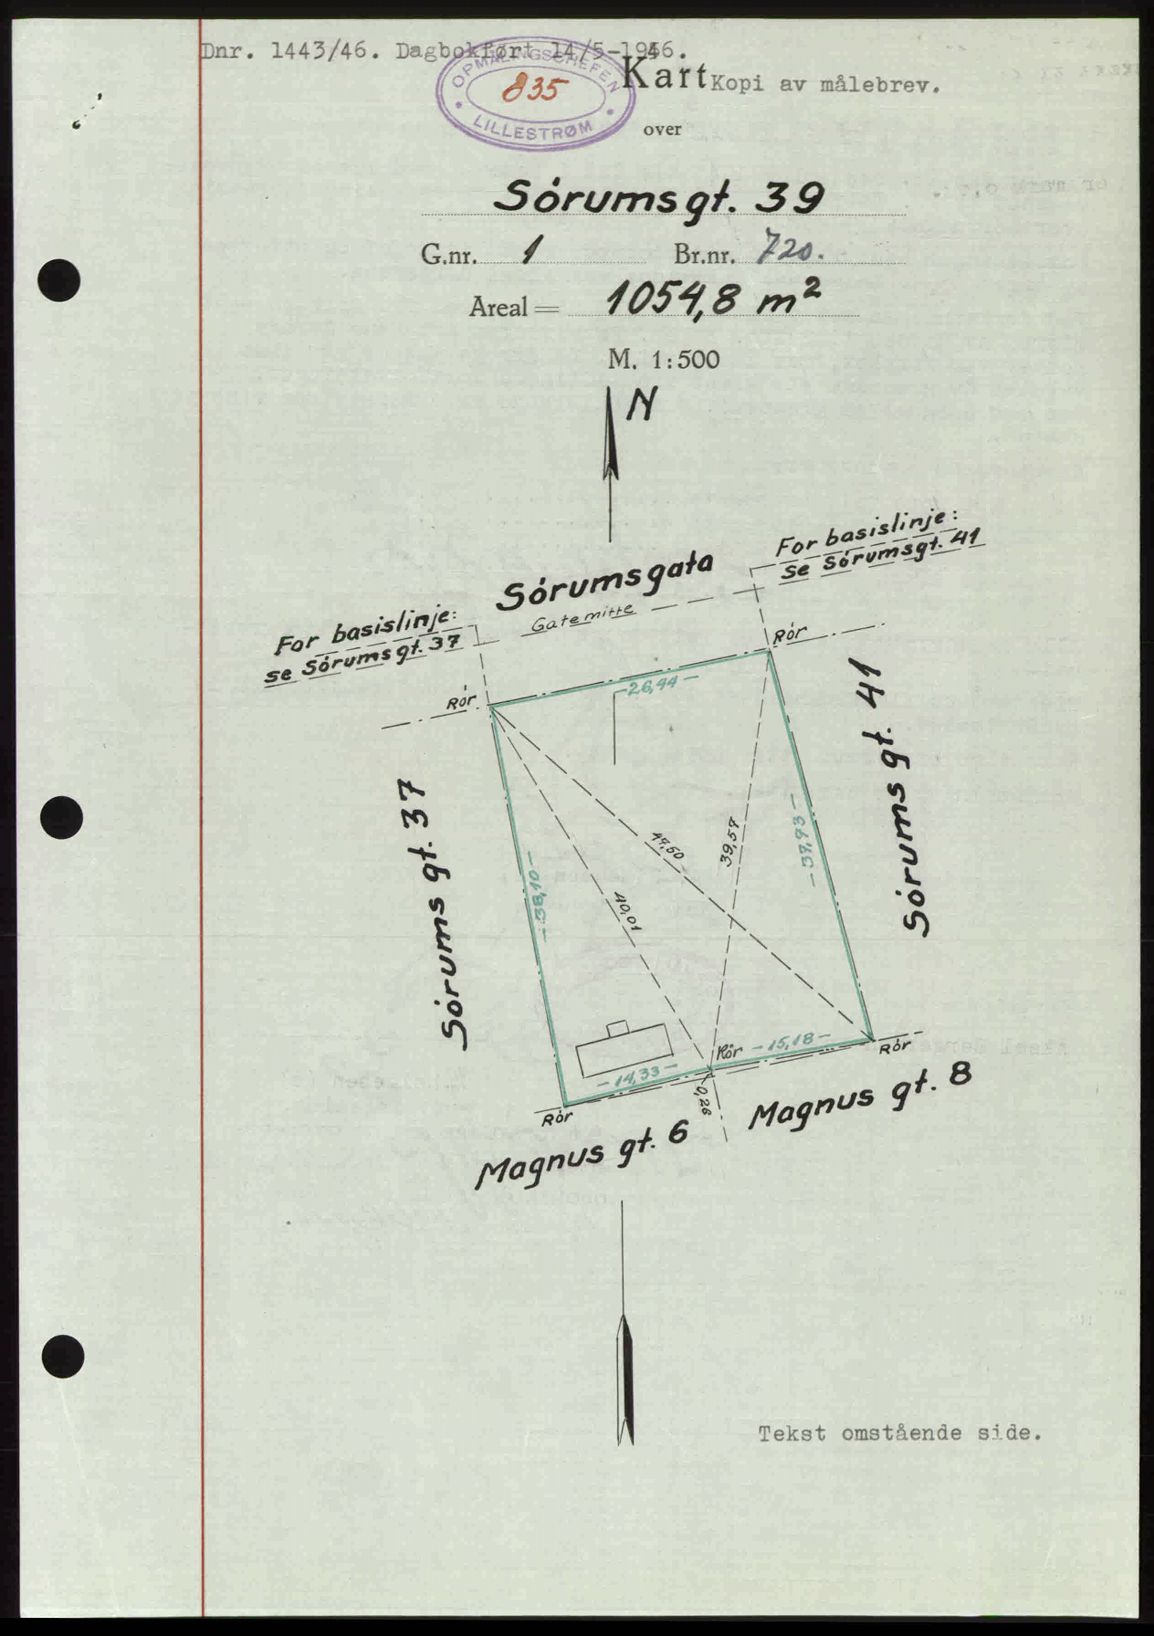 Dnr. 1443/46. Dagbokført 14/5-1946.
OPMÅLINGSCHEFEN
835
LILLESTRØM
Kart Kopi av målebrev.
over
Sórumsgt. 39
G.nr. 1 Br.nr. 720.
Areal = 1054,8 m²
M. 1:500
N
For basislinje:
se Sórumsgt. 41
Sórumsgata
Gatemitte
For basislinje:
se Sórumsgt. 37
Rór
Rór
26,44
Sórums gt. 37
Sórums gt. 41
38,10
40,01
47,50
39,57
37,93
Rór
15,18
Rór
14,33
0,26
Rór
Magnus gt. 6
Magnus gt. 8
Tekst omstående side.